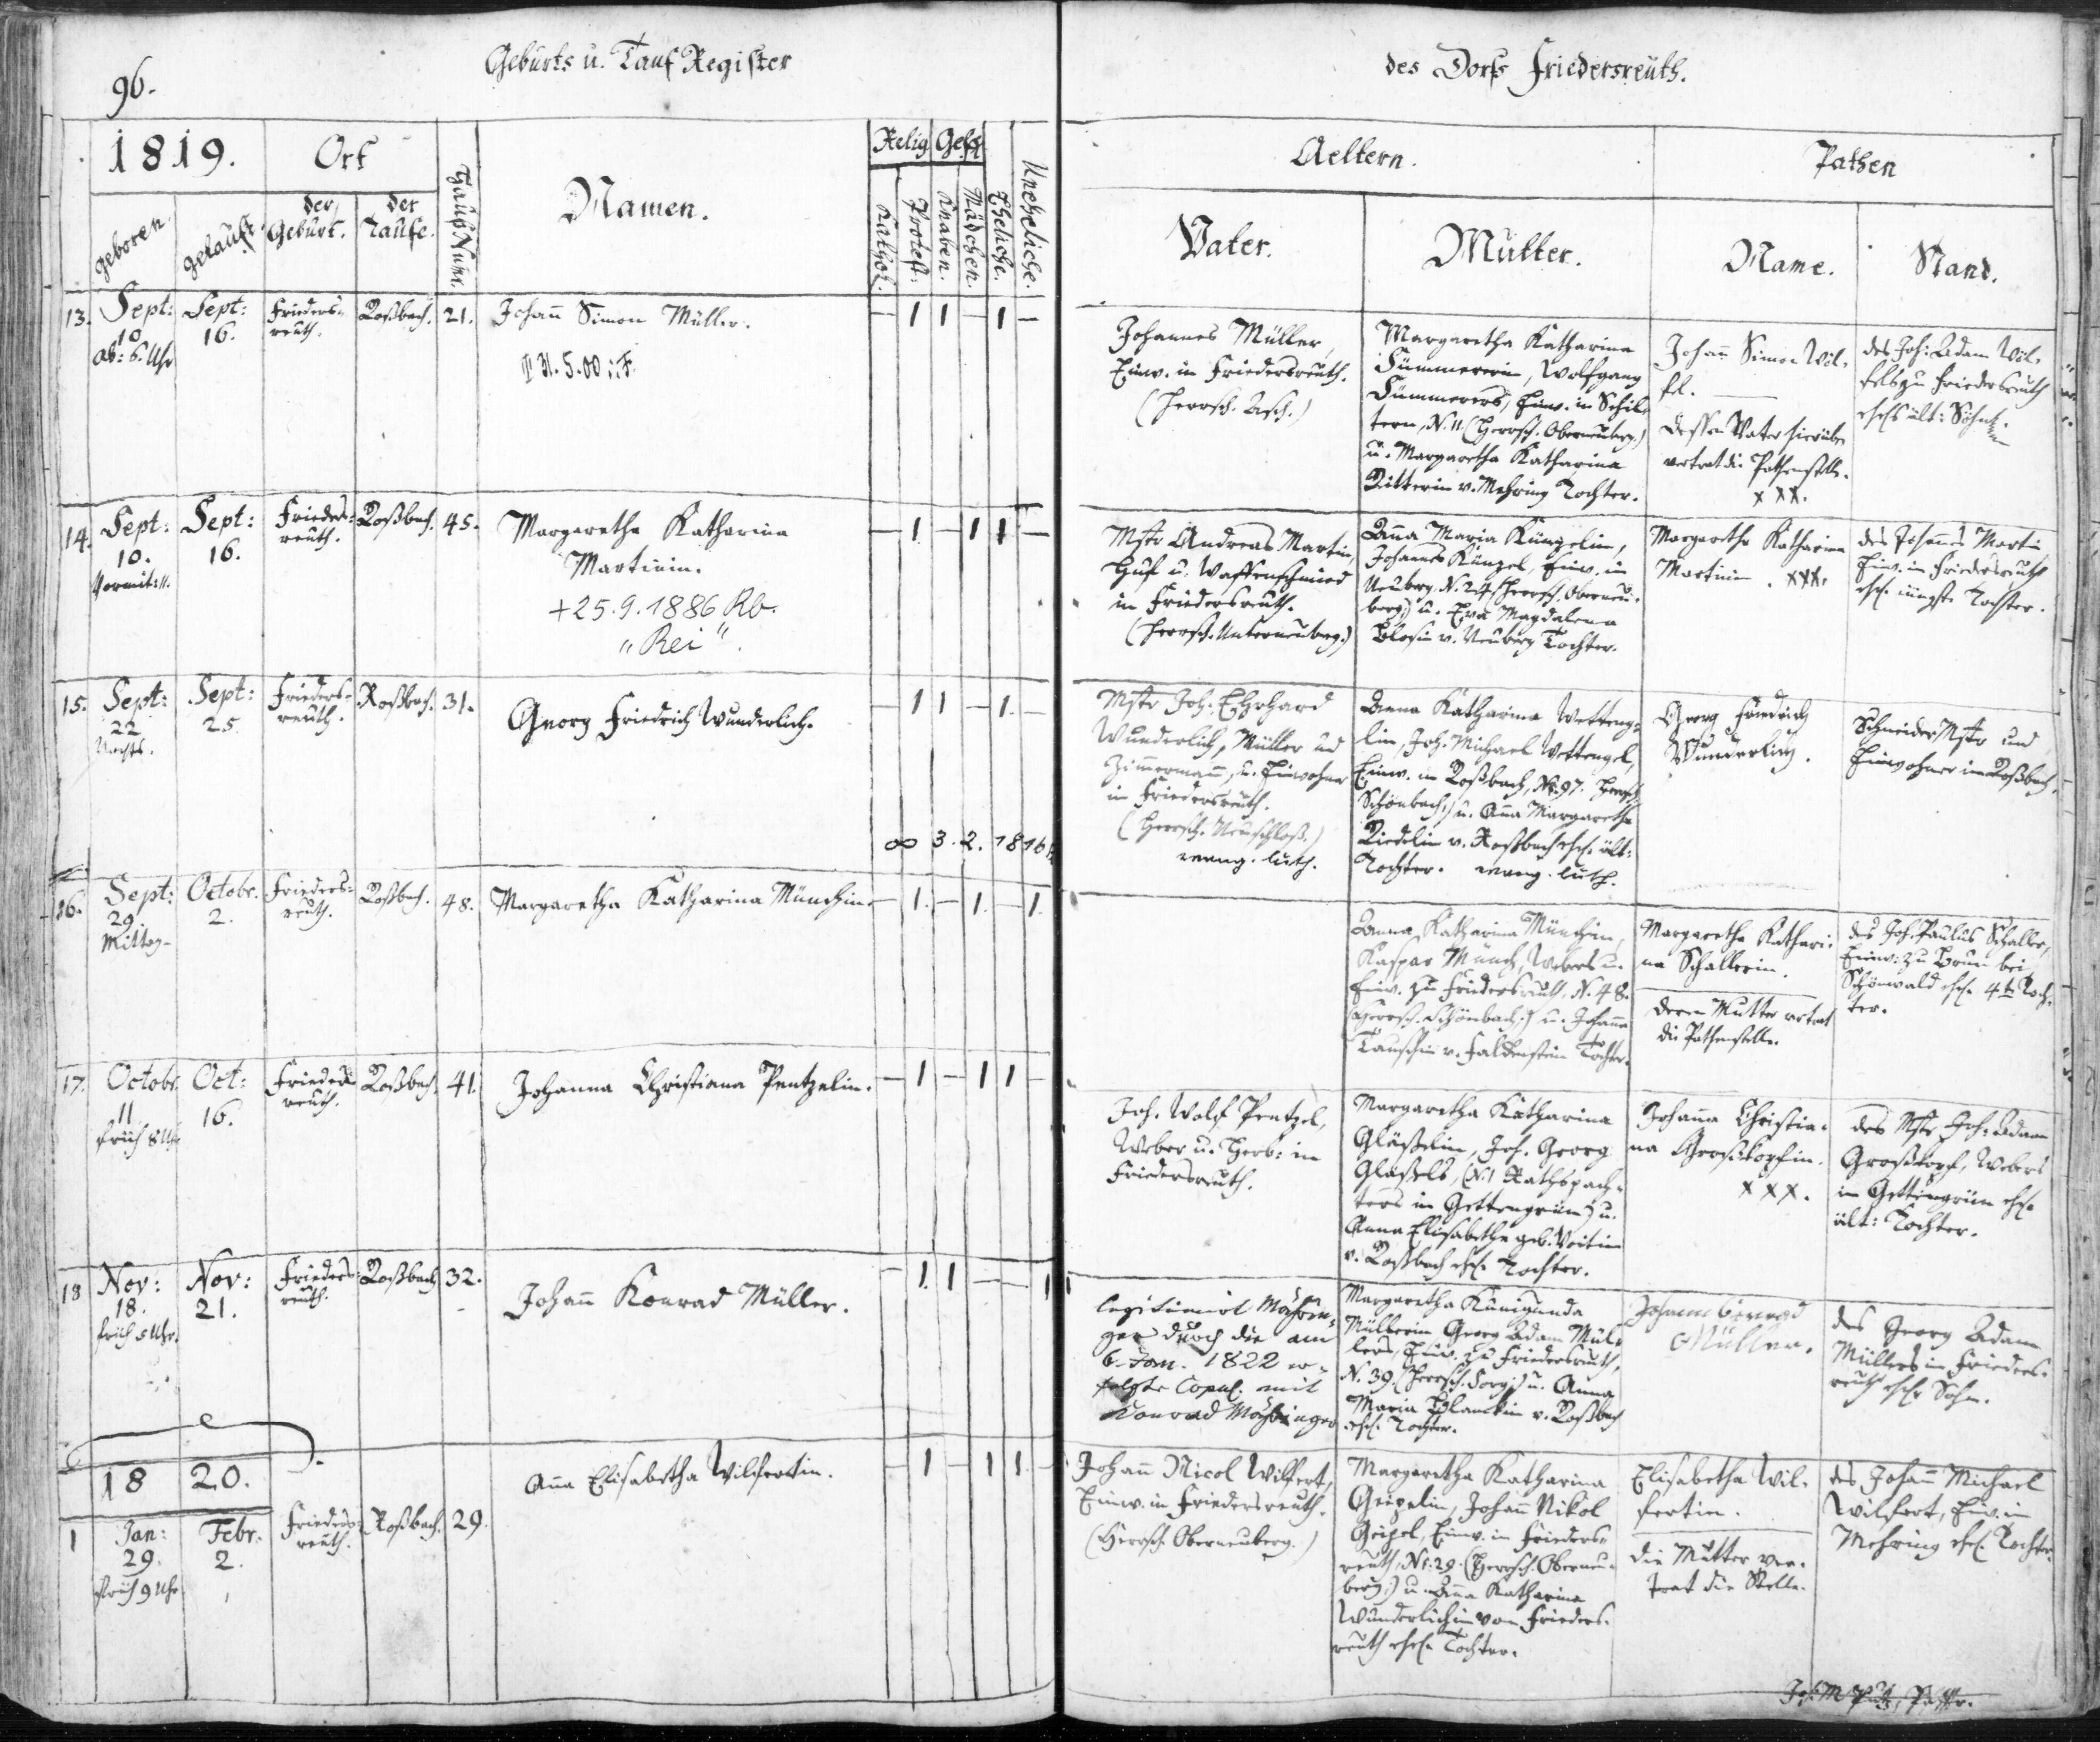 96.
Geburts u. Tauf Register
des Dorfs Friedersreuth.
1819.
Ort
Namen.
Relig.
Geschl.
Aeltern.
Pathen
geboren.
getauft.
der Geburt.
der Taufe.
Hauß Num.
Kathol.
Protest.
Knaben.
Mädchen.
Eheliche.
Uneheliche.
Vater.
Mutter.
Name.
Stand.
13. Sept: Sept: Frieders= Roßbach. 21. Johañ Simon Müller. — 1 1 — 1 —
10 16. reuth.
Ab: 6. Uhr
Johannes Müller,
Einw. in Friedersreuth.
(Herrsch. Asch.)
Margaretha Katharina
Sümmererin, Wolfgang
Sümmerers, Einw. in Schil-
tern, N. 11. (Herrsch. Oberneuberg.)
u. Margaretha Katharina
Ritterin v. Mehring Tochter.
Johañ Simon Wöl-
fel.
dessen Vater hierüber
vertrat die Pathenstelle.
xxx.
des Joh: Adam Wöl-
fels zu Friedersreuth
ehel ält: Sohn.
14. Sept: Sept: Frieders= Roßbach. 45. Margaretha Katharina — 1 — 1 1 —
10. 16. reuth. Martinin.
Vormit: 11.
+ 25.9.1886 Rb.
"Rei".
Mstr Andreas Martin,
Huf u. Waffenschmied
in Friedersreuth.
(Herrsch. Unterneuberg.)
Aña Maria Künzelin,
Johannes Künzel, Einw. in
Neuberg, N. 24 (Herrsch. Oberneu-
berg) u. Eva Magdalena
Blosin v. Neuberg Tochter.
Margaretha Katharina
Martinin. xxx.
des Johañes Martin
Einw. in Friedersreuth
ehel. jüngste Tochter.
15. Sept: Sept: Frieders= Roßbach. 31. Georg Friedrich Wunderlich. — 1 1 — 1 —
22 25. reuth.
Nachts.
∞ 3. 2. 1846
Mstr Joh. Ehrhard
Wunderlich, Müller und
Zimmermañ, u. Einwohner
in Friedersreuth.
(Herrsch. Neuschloß.)
evang. luth.
Anna Katharina Wetteng-
lin, Joh. Michael Wettengel,
Einw. in Roßbach, Nr. 97. Herrsch.
Schönbach,) u. Aña Margaretha
Riedelin v. Roßbach ehel. ält:
Tochter. evang. luth.
Georg Friedrich
Wunderlich.
Schneider Mstr und
Einwohner in Roßbach.
16. Sept: Octobr. Frieders= Roßbach. 48. Margaretha Katharina Münchin. — 1. — 1. — 1.
29. 2. reuth.
Mittag
Anna Katharina Münchin,
Kaspar Münch, Webers u.
Einw. zu Friedersreuth, N. 48.
(Herrsch. Schönbach.) u. Johanna
Tauschin v. Falckenstein Tochter.
Margaretha Kathari-
na Schallerin.
deren Mutter vertrat
die Pathenstelle.
des Joh. Paulus Schaller,
Einw: zu Brunn bei
Schönwald ehel. 4te Toch-
ter.
17. Octobr. Oct: Frieders= Roßbach. 41. Johanna Christiana Pentzelin. — 1 — 1 1 —
11. 16. reuth.
früh 8 Uhr
Joh. Wolf Pentzel,
Weber u. Herb: in
Friedersreuth.
Margaretha Katharina
Gläßelin, Joh. Georg
Gläßels, (N. 1 Rathspach-
ters in Gettengrün) u.
Anna Elisabetha geb. Voitin
v. Roßbach ehel. Tochter.
Johaña Christia-
na Großkopfin.
xxx.
des Mstr Joh: Adam
Großkopf, Webers
in Gettengrün ehel.
ält: Tochter.
18 Nov: Nov: Frieders= Roßbach 32. Johañ Konrad Müller. — 1. 1 — — 1
18. 21. reuth.
früh 5 Uhr.
legitimirt Mährin-
ger durch die am
6. Jan. 1822 er-
folgte Copul. mit
Konrad Mähringer
Margaretha Kunigunda
Müllerin Georg Adam Mül-
lers, Einw. zu Friedersreuth,
N. 39. (Herrsch. Sorg.) u. Anna
Maria Blanckin v. Roßbach
ehel. Tochter.
Johann Conrad
Müller.
des Georg Adam
Müllers in Frieders-
reuth ehel. Sohn.
18 20.
1 Jan: Febr. Frieders= Roßbach. 29. Aña Elisabetha Wilfertin. — 1 — 1 1 —
29. 2. reuth.
früh 9 Uhr
Johañ Nicol Wilfert,
Einw. in Friedersreuth.
(Herrsch. Oberneuberg.)
Margaretha Katharina
Geipelin, Johañ Nikol
Geipel, Einw. in Frieders-
reuth, Nr. 29. (Herrsch. Oberneu-
berg.) u. Aña Katharina
Wunderlichin von Frieders-
reuth ehel. Tochter.
Elisabetha Wil-
fertin.
die Mutter ver-
trat die Stelle.
des Johañ Michael
Wilfert, Einw. in
Mehring ehel. Tochter.